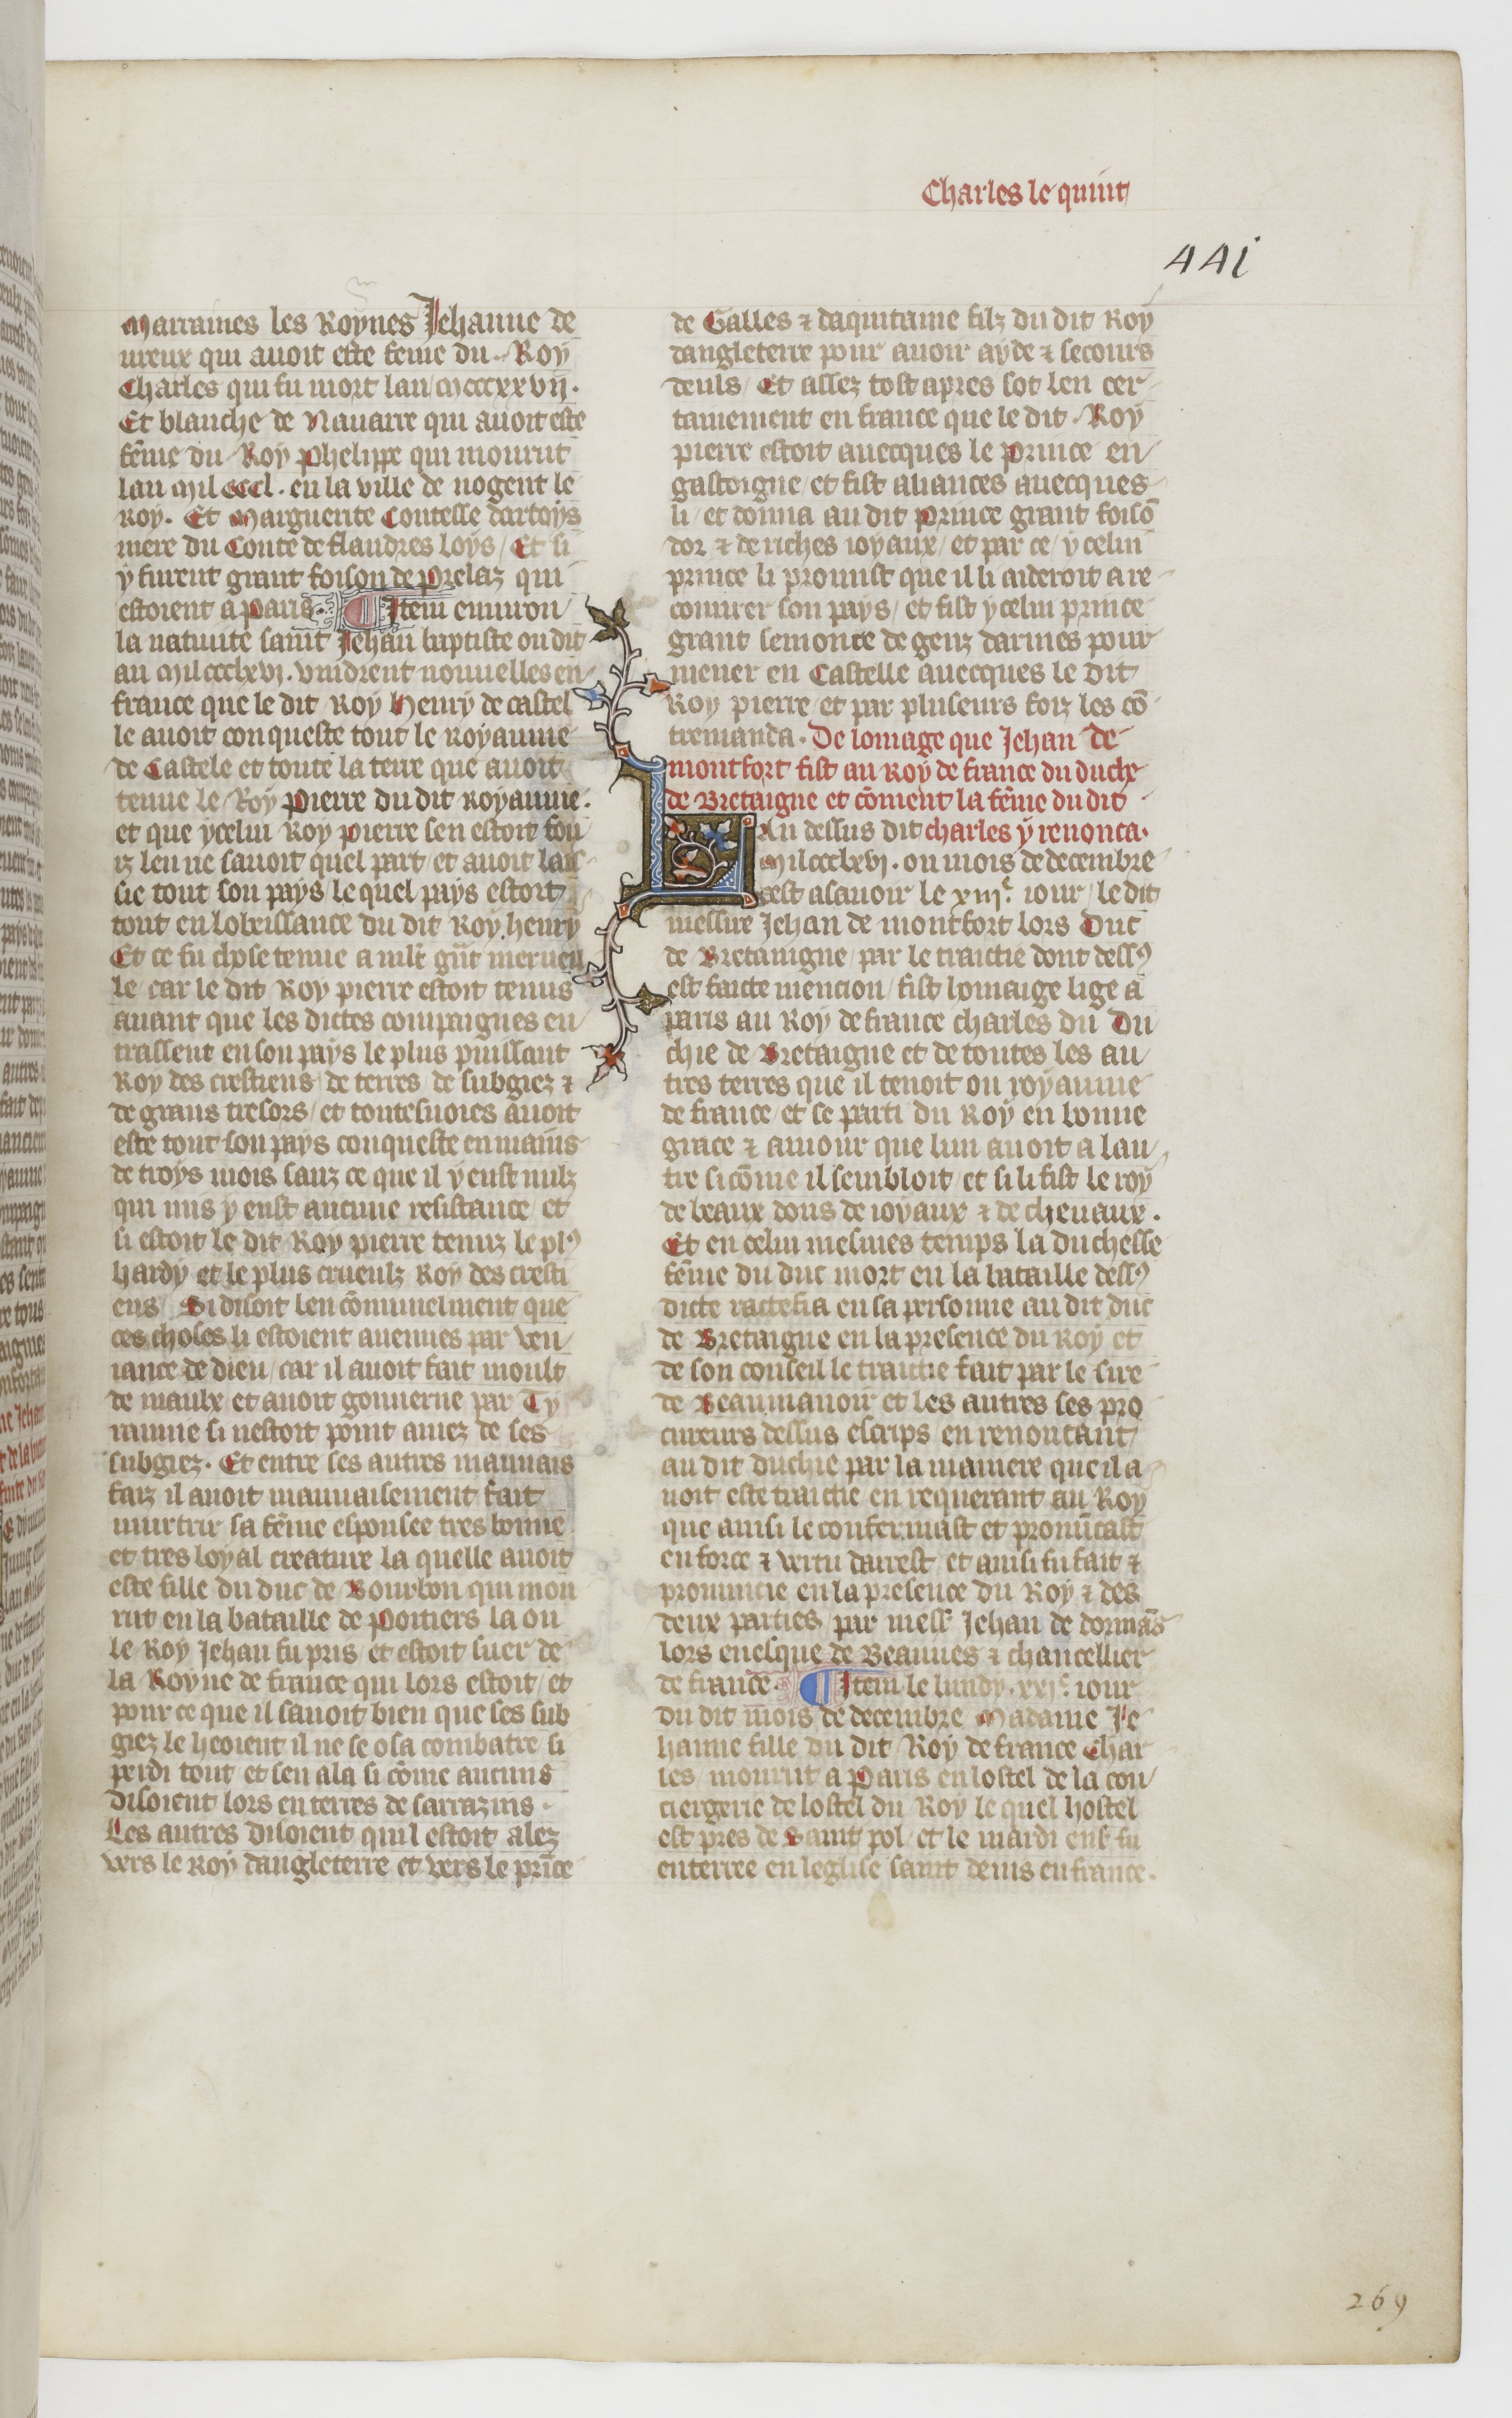 Charles le quint
441
Marraines les Roynes Jehanne de
ureux qui auoit este fẽme du Roy
Charles qui fu mort lan mcccxxvij.
Et blanche de Nauarre qui auoit este
fẽme du Roy phelippe qui mourut
lan mil cccl. en la ville de nogent le
roy. Et Marguerite Contesse dartoys
mere du Conte de flandres loys / Et si
y furent grant foison de prelaz qui
estoient a paris ¶ Item enuiron
la natiuite saint Jehan baptiste ou dit
an mil ccclxvj. vindrent nouuelles en
france que le dit Roy henry de castel
le auoit conqueste tout le Royaume
de Castele et toute la terre que auoit
tenue le Roy pierre du dit royaume.
et que ycelui Roy pierre sen estoit fou
iz len ne sauoit quel part et auoit lais
sie tout son pays / le quel pays estoit
tout en lobeissance du dit Roy henry
Et ce fu chose tenue a mlt gñt merueil
le car le dit Roy pierre estoit tenus
auant que les dictes compaignes en
trassent en son pays le plus puissant
Roy des crestiens de terres de subgiez ⁊
de grans tresors / et toutesuoies auoit
este tout son pays conqueste en mains
de troys mois sanz ce que il y eust nulz
qui mis y eust aucune resistance / et
si estoit le dit Roy pierre tenuz le plꝰ
hardy et le plus crueulz Roy des cresti
ens / Si disoit len cõmunelment que
ces choses li estoient auenues par ven
iance de dieu / car il auoit fait moult
de maulx et auoit gouuerne par Ty
rannie si nestoit point amez de ses
subgiez. Et entre ses autres mauuais
faiz il auoit mauuaisement fait
murtrir sa fẽme espousee tres bonne
et tres loyal creature la quelle auoit
este fille du duc de Bourbon qui mou
rut en la bataille de poitiers la ou
le Roy Jehan fu pris / et estoit suer de
la Royne de france qui lors estoit / et
pour ce que il sauoit bien que ses sub
giez le heoient il ne se osa combatre si
perdi tout et sen ala si cõme aucuns
disoient lors en terres de sarrazins.
Les autres disoient quil estoit alez
vers le Roy dangleterre et vers le prĩce
de Galles ⁊ daquitaine filz du dit Roy
dangleterre pour auoir ayde ⁊ secours
deuls / Et assez tost apres sot len cer
tainement en france que le dit Roy
pierre estoit auecques le prince en
gascoigne / et fist aliances auecques
li / et donna au dit prince grant foisõ
dor ⁊ de riches ioyaux / et par ce / ycelui
prince li promist que il li aideroit a re
couurer son pays / et fist ycelui prince
grant semonce de genz darmes pour
mener en Castelle auecques le dit
Roy pierre / et par pluseurs foiz les cõ
tremanda. De lomage que Jehan de
montfort fist au Roy de france du duche
de Bretaigne et cõment la fẽme du dit
Lan dessus dit charles y renonca.
Mil ccclxvj. ou mois de decembre
cest asauoir le xiijᵉ. iour / le dit
messire Jehan de montfort lors Duc
de Bretaingne / par le traictie dont dessꝰ
est faicte mencion / fist homaige lige a
paris au Roy de france charles du Du
chie de Bretaigne et de toutes les au
tres terres que il tenoit ou royaume
de france / et se parti du Roy en bonne
grace ⁊ amour que lun auoit a lau
tre si cõme il sembloit / et si li fist le roy
de beaux dons de ioyaux ⁊ de cheuaux.
Et en celui mesmes temps la duchesse
fẽme du duc mort en la bataille dessꝰ
dicte ractefia en sa personne au dit duc
de Bretaigne en la presence du Roy et
de son conseil le traictie fait par le sire
de Beaumanoir et les autres ses pro
cureurs dessus escrips en renoncant
au dit duchie par la maniere que il a
uoit este traictie en requerant au Roy
que ainsi le confermast et pronũcast
en force ⁊ vertu darrest / et ainsi fu fait ⁊
pronuncie en la presence du Roy ⁊ des
deux parties / par mess̃ Jehan de dormãs
lors euesque de Beauues ⁊ chancellier
de france. ¶ Item le lundy. xxjᵉ. iour
du dit mois de decembre Madame Je
hanne fille du dit Roy de france Char
les / mourut a Paris en lostel de la con
ciergerie de lostel du Roy le quel hostel
est pres de Saint pol / et le mardi ens̃ fu
enterree en leglise saint denis en france.
269